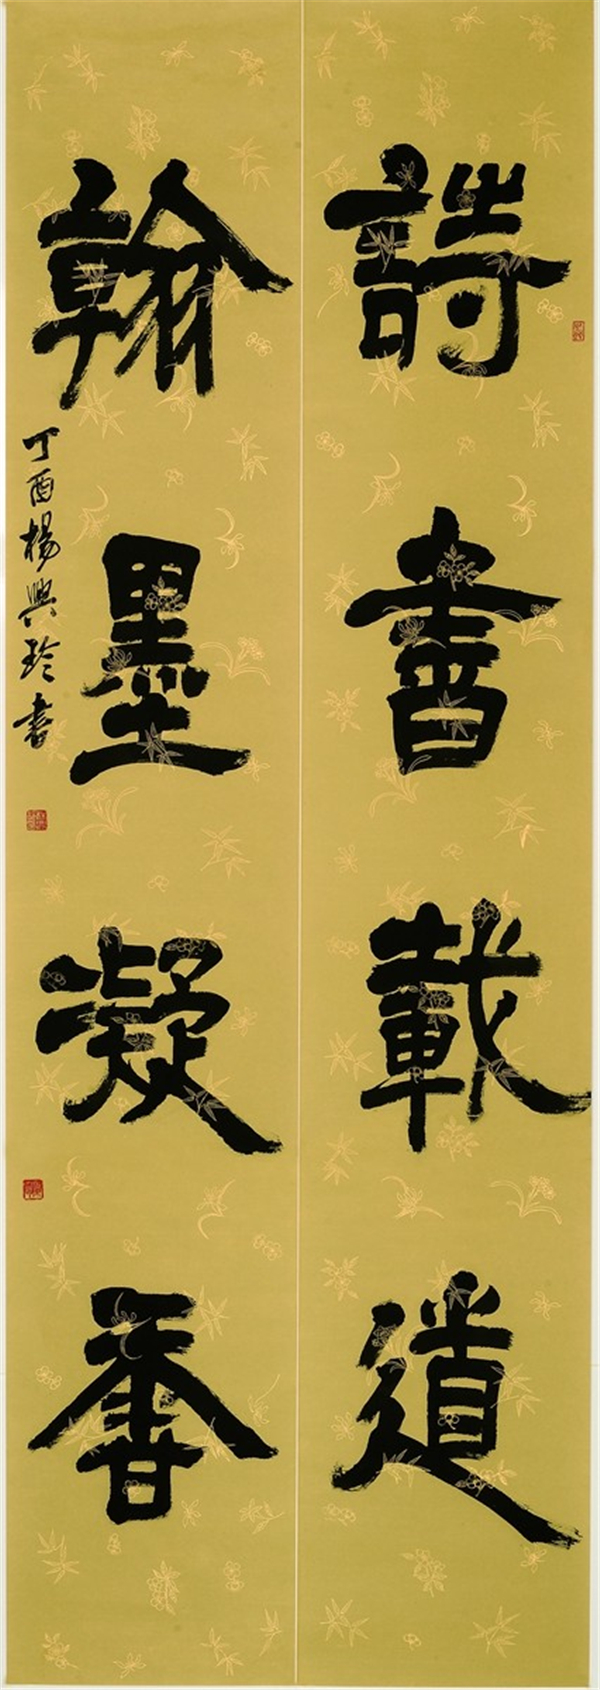 詩書載道
翰墨凝香
丁酉楊興玲書